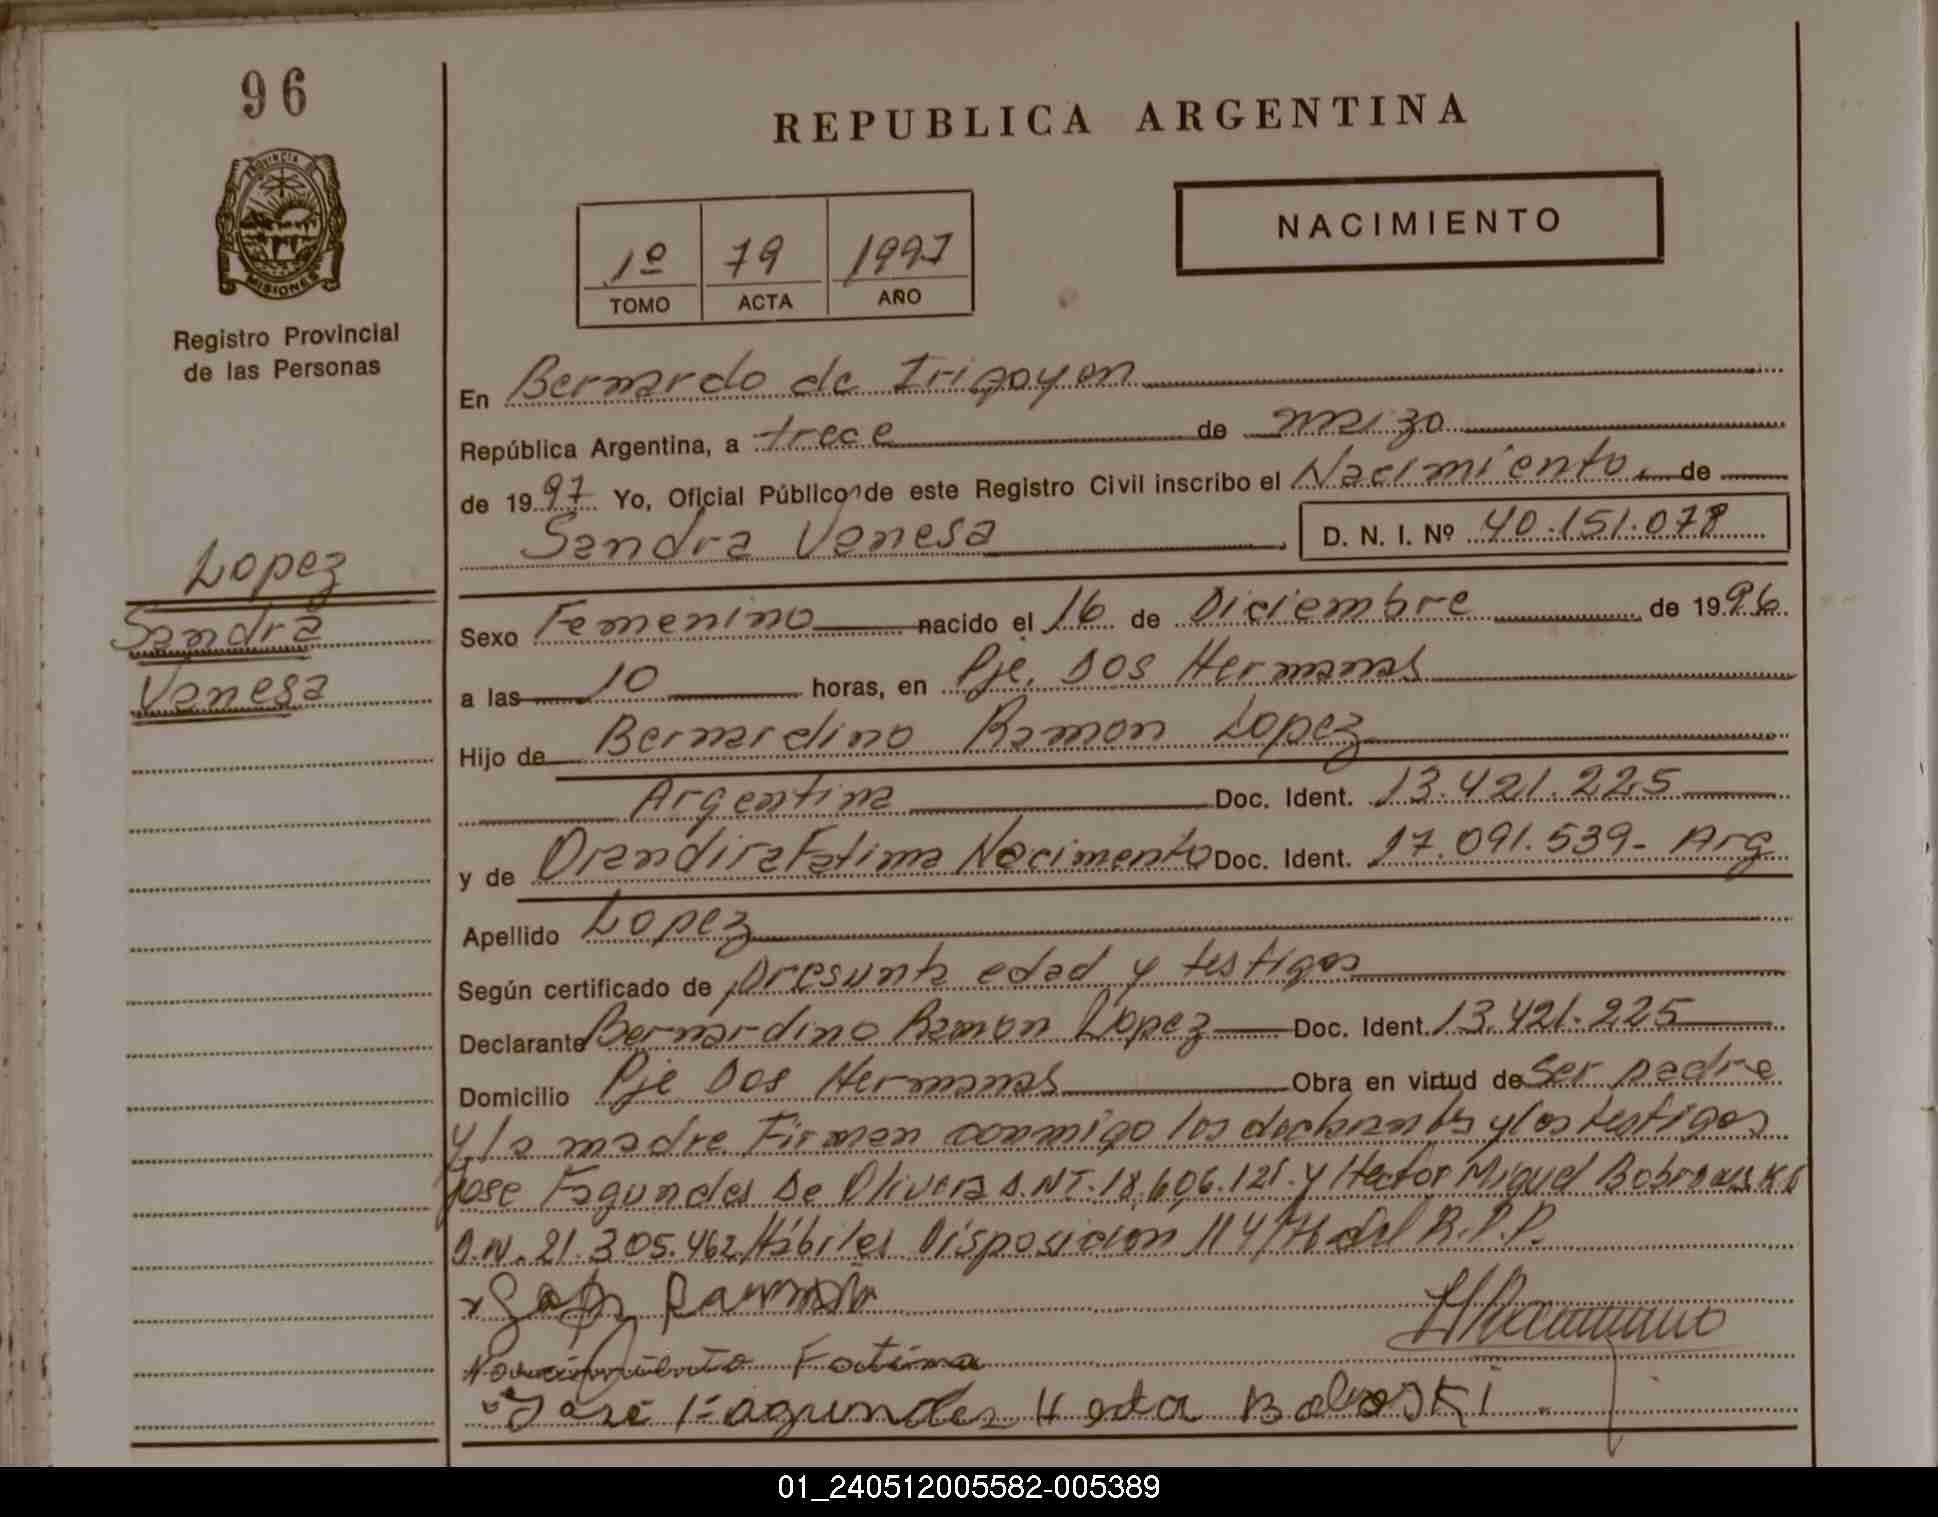 96
REPUBLICA ARGENTINA
PROVINCIA DE
MISIONES
Registro Provincial
de las Personas
1º 79 1997
TOMO ACTA AÑO
NACIMIENTO
En Bernardo de Irigoyen
República Argentina, a trece de marzo
de 1997 Yo, Oficial Público de este Registro Civil inscribo el Nacimiento, de
Sandra Vanesa D. N. I. Nº 40.151.078
Lopez
Sandra
Vanesa
Sexo Femenino nacido el 16 de Diciembre de 1996
a las 10 horas, en Pje. Dos Hermanas
Hijo de Bernardino Ramon Lopez
Argentina Doc. Ident. 13.421.225
y de Orandira Fatima Nacimento Doc. Ident. 17.091.539- Arg
Apellido Lopez
Según certificado de presunta edad y testigos
Declarante Bernardino Ramon Lopez Doc. Ident. 13.421.225
Domicilio Pje Dos Hermanas Obra en virtud de ser padre
y la madre. Firman conmigo los declarantes y los testigos
Jose Fagundes De Olivera D.N.I. 18.606.121. y Hector Miguel Bobrouski
D.N. 21.305.462 Hábiles Disposicion 114/76 del R.P.P.
Ramon
Nacimiento Fatima
José Fagundes
01_240512005582-005389